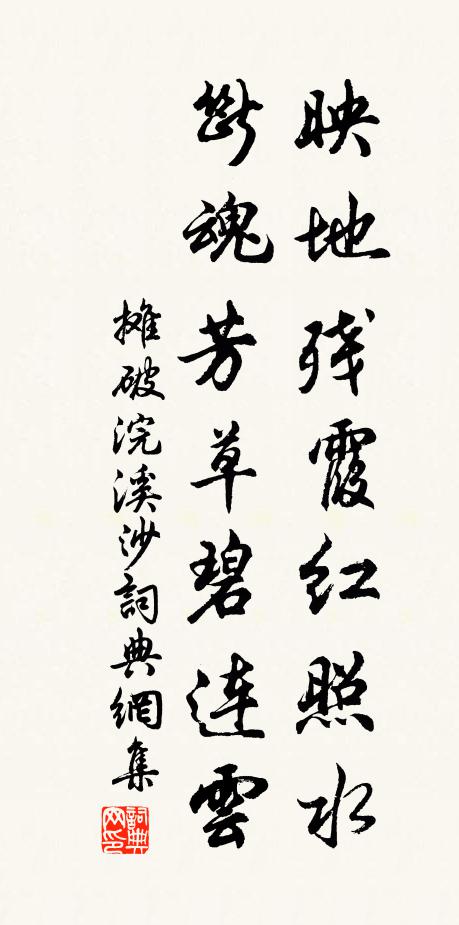 映地残霞红照水
断魂芳草碧连雲
摊破浣溪沙詞典網集
詞典网印